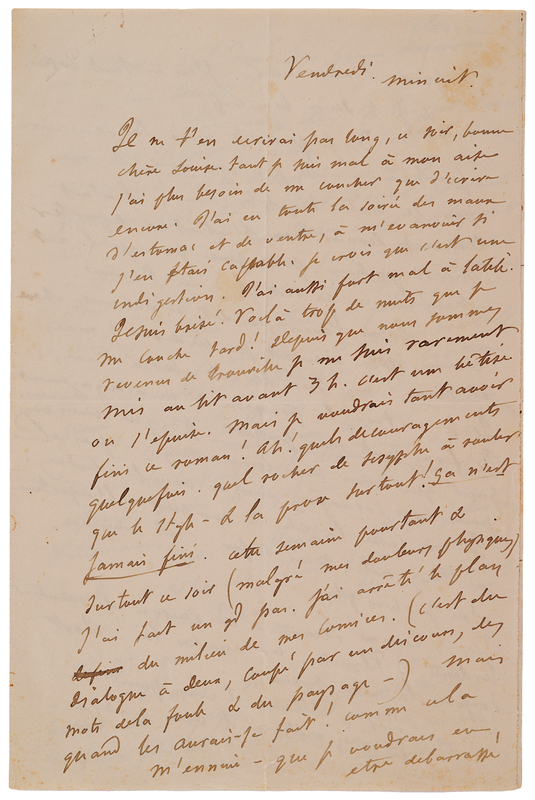 Vendredi. minuit.
Je ne t'en ecrirai pas long, ce soir, bonne
chère Louise. tant je suis mal à mon aise
j'ai plus besoin de me coucher que d'ecrire
encore. J'ai eu toute la soirée des maux
d'estomac et de ventre, à m'evanouir si
j'en étais capable. je crois que c'est une
indigestion. J'ai aussi fort mal à la tête.
Je suis brisé. Voilà trop de nuits que je
me couche tard! depuis que nous sommes
revenus de trouville je me suis rarement
mis au lit avant 3 h. c'est une bêtise
on s'epuise. mais je voudrais tant avoir
fini ce roman! Ah! quels decouragements
quelquefois. quel rocher de Sisyphe à rouler
que le style - & la prose surtout! ça n'est
jamais fini. cette semaine pourtant &
surtout ce soir (malgré mes douleurs physiques)
j'ai fait un gd pas. j'ai arrêté le plan
du milieu de mes comices. (c'est du
dialogue à deux, coupé par un discours, des
mots de la foule & du paysage -) mais
quand les aurai-je fait! comme cela
m'ennuie - que je voudrais en
etre debarrassé